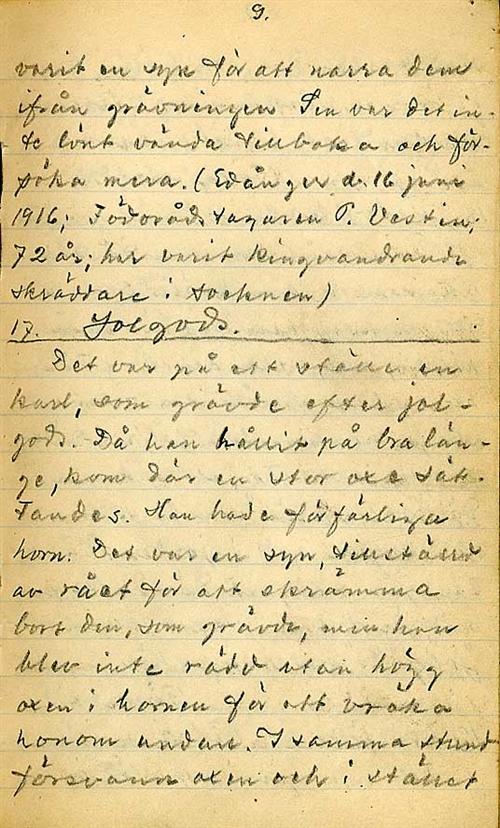 9.
varit en syn för att narra dem
ifrån grävningen Sen var det in-
te lönt vända tillbaka och för-
söka mera. (Edånger d. 16 juni
1916; Födorådstagaren P. Vestin;
72 år; har varit kringvandrande
skräddare i socknen)
17. Jolgods.
Det var på ett ställe en
karl, som grävde efter jol-
gods. Då han hållit på bra län-
ge, kom där en stor oxe sät-
tandes. Han hade förfärliga
horn. Det var en syn, tillställd
av rået för att skrämma
bort den, som grävde, men han
blev inte rädd utan högg
oxen i hornen för att vräka
honom undan. I samma stund
försvann oxen och i stället